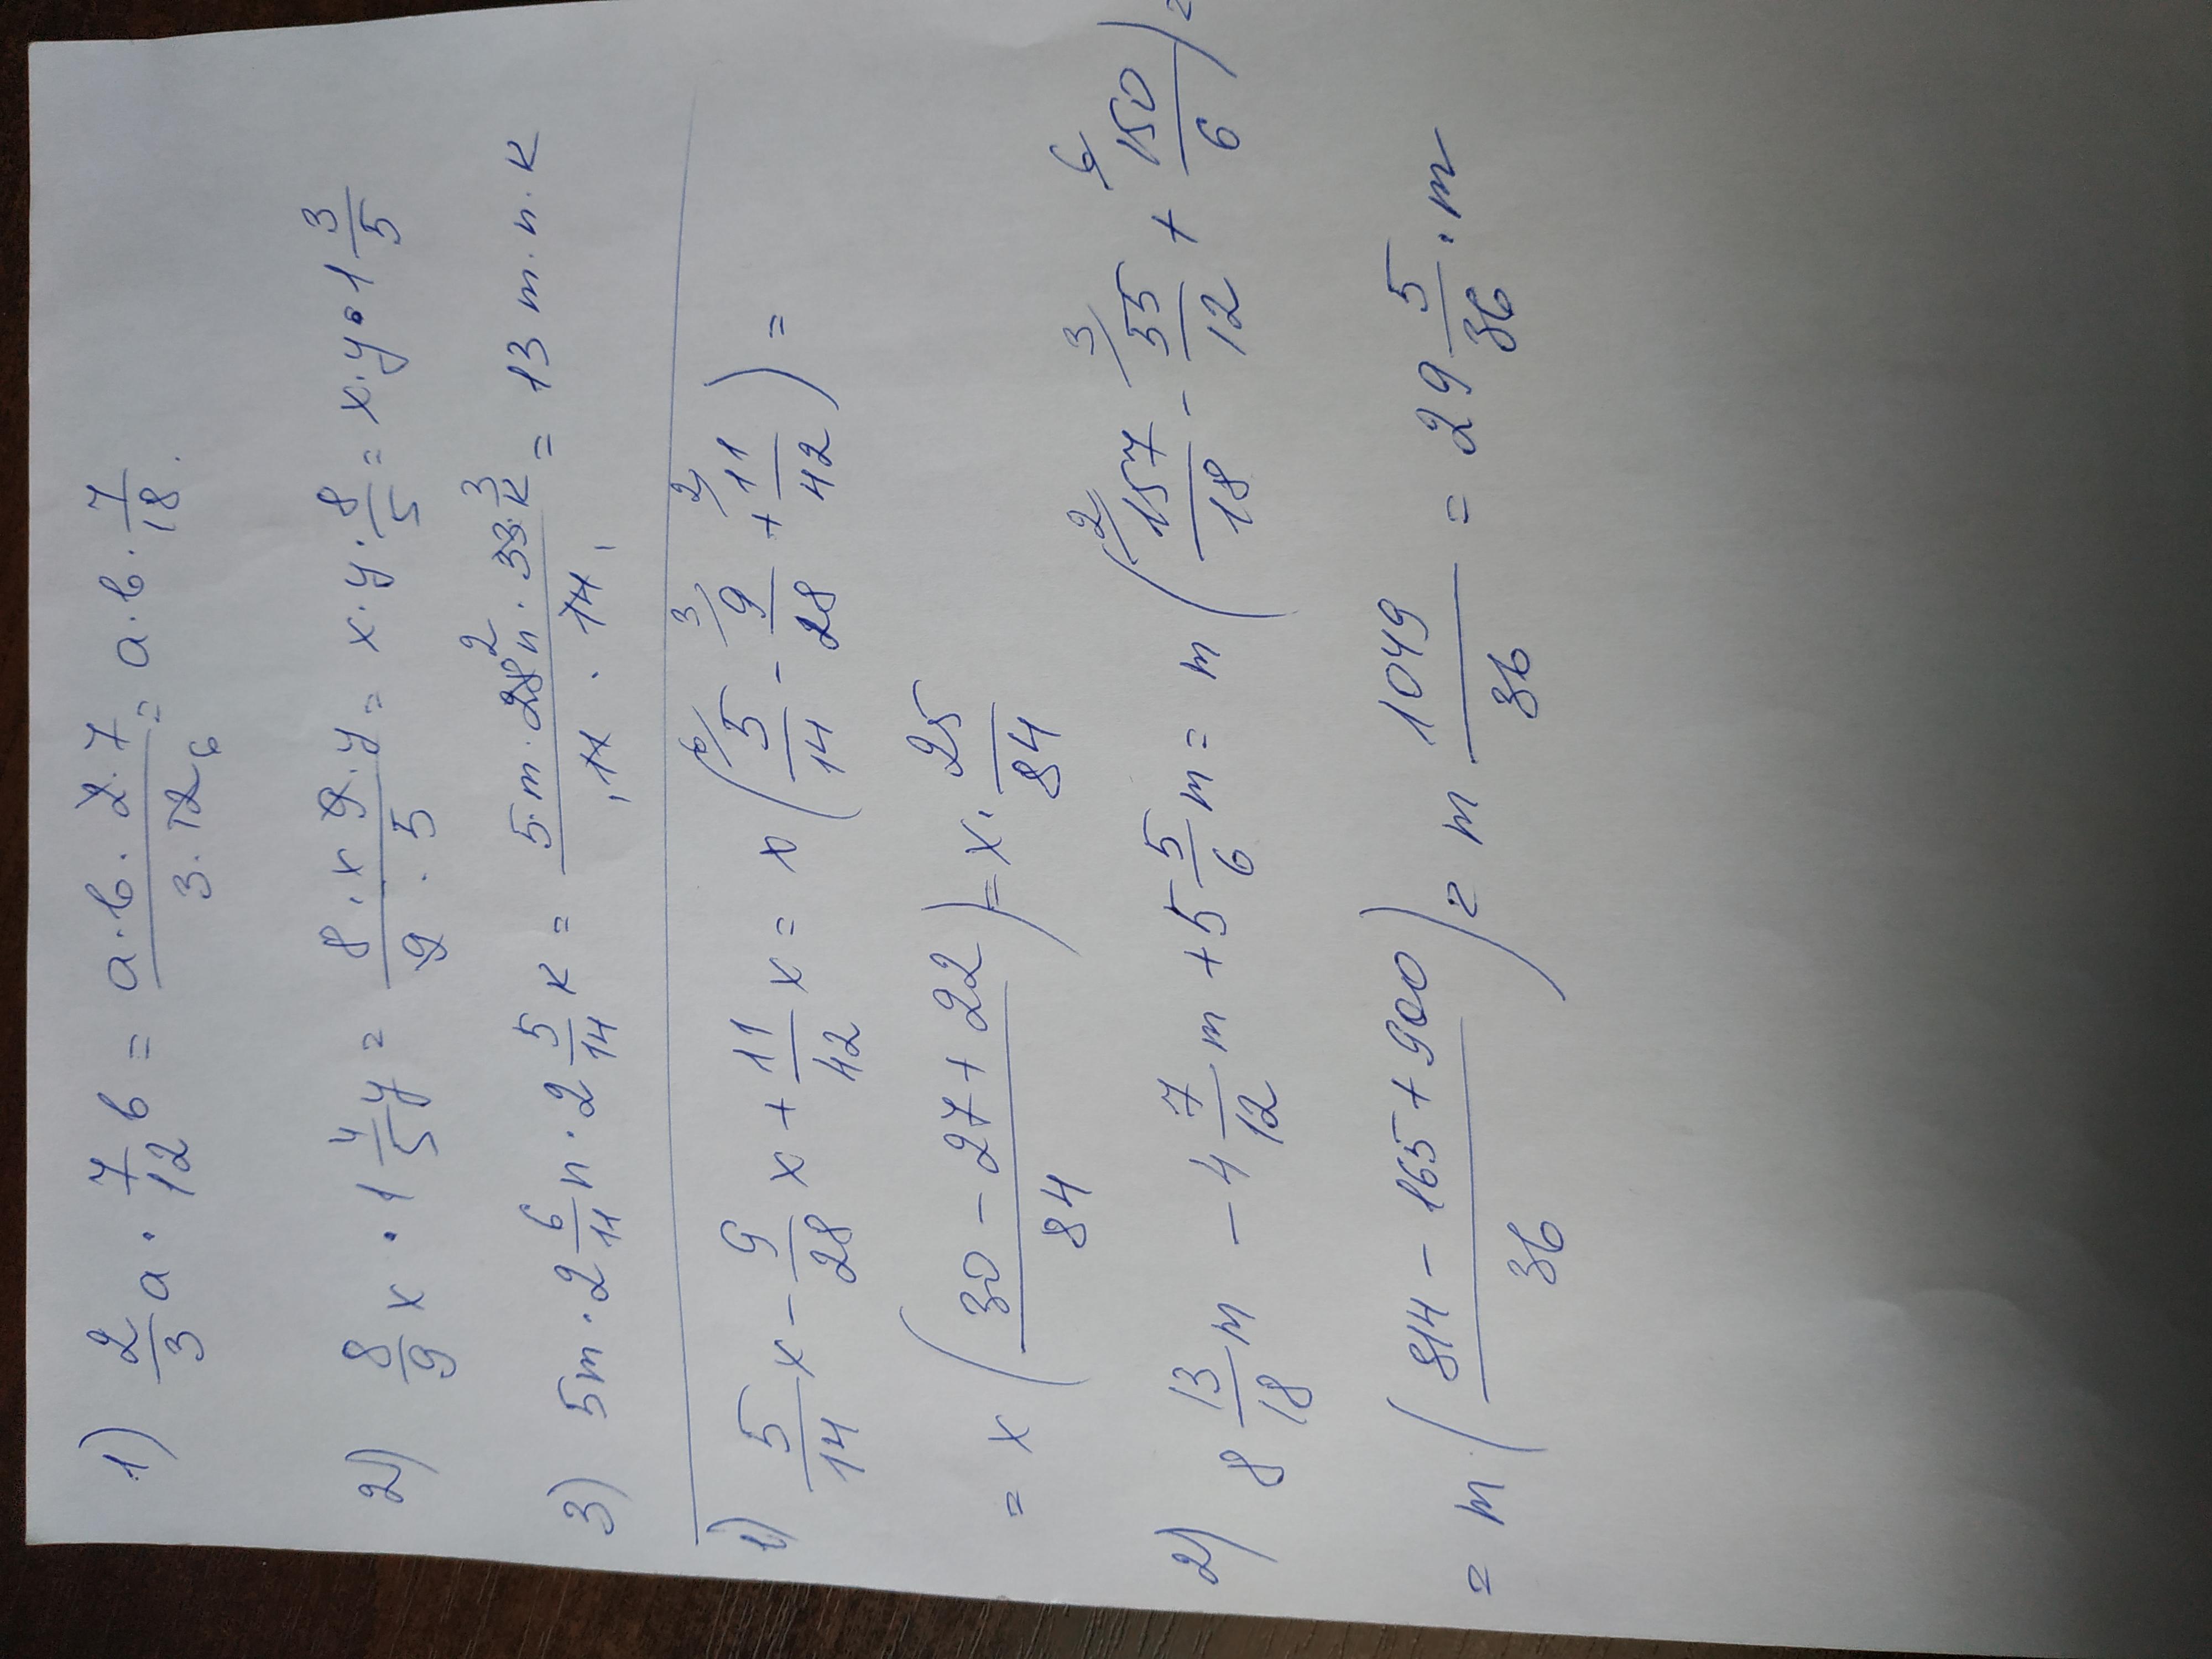 1) 2/3 a · 7/12 b = a·b·2·7 / 3·12 6 = a·b· 7/18.
2) 8/9 x · 1 4/5 y = 8·x 9·y / 9·5 = x·y· 8/5 = x·y·1 3/5
3) 5m · 2 6/11 n · 2 5/14 к = 5·m·28 2 n·33 3 к / 1 11 · 14 1 = 13 m·n·к
1) 5/14 x - 9/28 x + 11/42 x = x ( 6/ 5/14 - 3/ 9/28 + 2/ 11/42 ) =
= x ( 30 - 27 + 22 / 84 ) = x· 25/84
2) 8 13/18 m - 4 7/12 m + 5 5/6 m = m ( 2/ 157/18 - 3/ 55/12 + 6/ 150/6 ) =
= m ( 814 - 165 + 900 / 36 ) = m 1049/36 = 29 5/36 · m